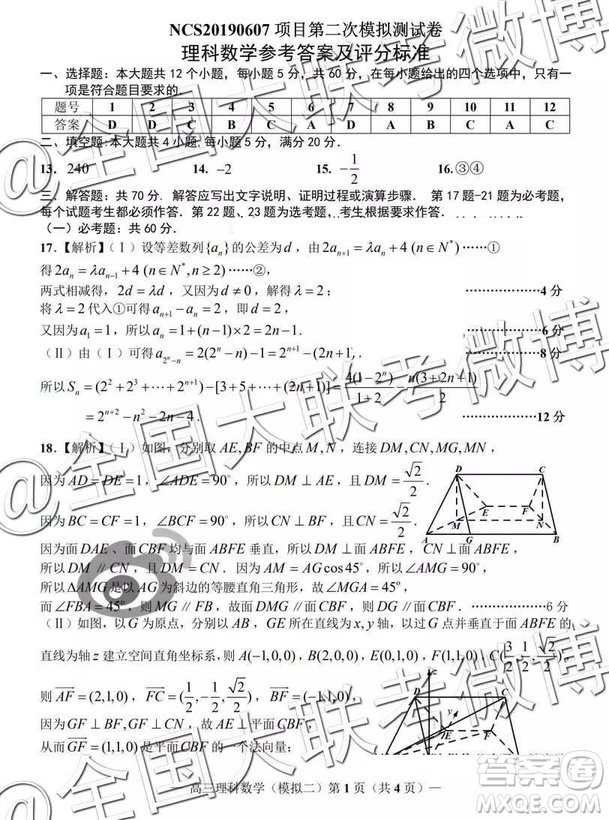 NCS20190607 项目第二次模拟测试卷
理科数学参考答案及评分标准
一、选择题：本大题共 12 个小题，每小题 5 分，共 60 分，在每小题给出的四个选项中，只有一
项是符合题目要求的.
题号 1 2 3 4 5 6 7 8 9 10 11 12
答案 D D C B C A C A B A
二、填空题:本大题共 4 小题,每小题 5 分，满分 20 分.
13. 240 14. -2 15. -1/2 16.③④
三、解答题：共 70 分. 解答应写出文字说明、证明过程或演算步骤. 第 17 题-21 题为必考题，
每个试题考生都必须作答. 第 22 题、23 题为选考题，考生根据要求作答.
（一）必考题：共 60 分.
17.【解析】(Ⅰ) 设等差数列{aₙ} 的公差为 d，由 2aₙ₊₁ = λaₙ + 4 (n∈N*) ……①
得 2aₙ = λaₙ₋₁ + 4 (n∈N*, n≥2) ……②，
两式相减得，2d = λd，又因为 d ≠ 0，解得 λ = 2； 4 分
将 λ = 2 代入①可得 aₙ₊₁ − aₙ = 2，即 d = 2，
又因为 a₁ = 1，所以 aₙ = 1 + (n−1)×2 = 2n−1. 6 分
(Ⅱ) 由(Ⅰ)可得 = 2(2ⁿ − n) − 1 = 2ⁿ⁺¹ − (2n+1) 8 分
所以 Sₙ = (2² + 2³ + ⋯ + 2ⁿ⁺¹) − [3 + 5 + ⋯ + (2n+1)] = 4(1−2ⁿ) n(3+2n+1)
= 2ⁿ⁺² − n² − 2n − 4. 12 分
18.【解析】(Ⅰ) 如图，分别取 AE, BF 的中点 M, N，连接 DM, CN, MG, MN，
因为 AD = DE = 1，∠ADE = 90°，所以 DM ⊥ AE，且 DM = √2/2.
因为 BC = CF = 1，∠BCF = 90°，所以 CN ⊥ BF，且 CN = √2/2.
因为面 DAE、面 CBF 均与面 ABFE 垂直，所以 DM ⊥ 面 ABFE，CN ⊥ 面 ABFE，
所以 DM ∥ CN，且 DM = CN. 因为 AM = AG cos45°，
所以 ΔAMG 是以 AG 为斜边的等腰直角三角形，故 ∠MGA = 45°，
而 ∠FBA = 45°，则 MG ∥ FB，故面 DMG ∥ 面 CBF，则 DG ∥ 面 CBF. 6 分
(Ⅱ) 如图，以 G 为原点，分别以 AB, GE 所在直线为 x, y 轴，以过 G 点并垂直于面 ABFE 的
直线为轴 z 建立空间直角坐标系，则 A(−1,0,0), B(2,0,0), E(0,1,0), F(1,1,0)
则 AF = (2,1,0)，FC = (1/2, −1/2, √2/2)，BF = (−1,1,0).
因为 GF ⊥ BF, GF ⊥ CN，故 GF ⊥ 平面
从而 GF = (1,1,0) 是平面 的一个法向量；
D C
M E F N
A G B
答案圈
— 高三理科数学（模拟二）第 1 页（共 4 页）—
@全国大联考微博